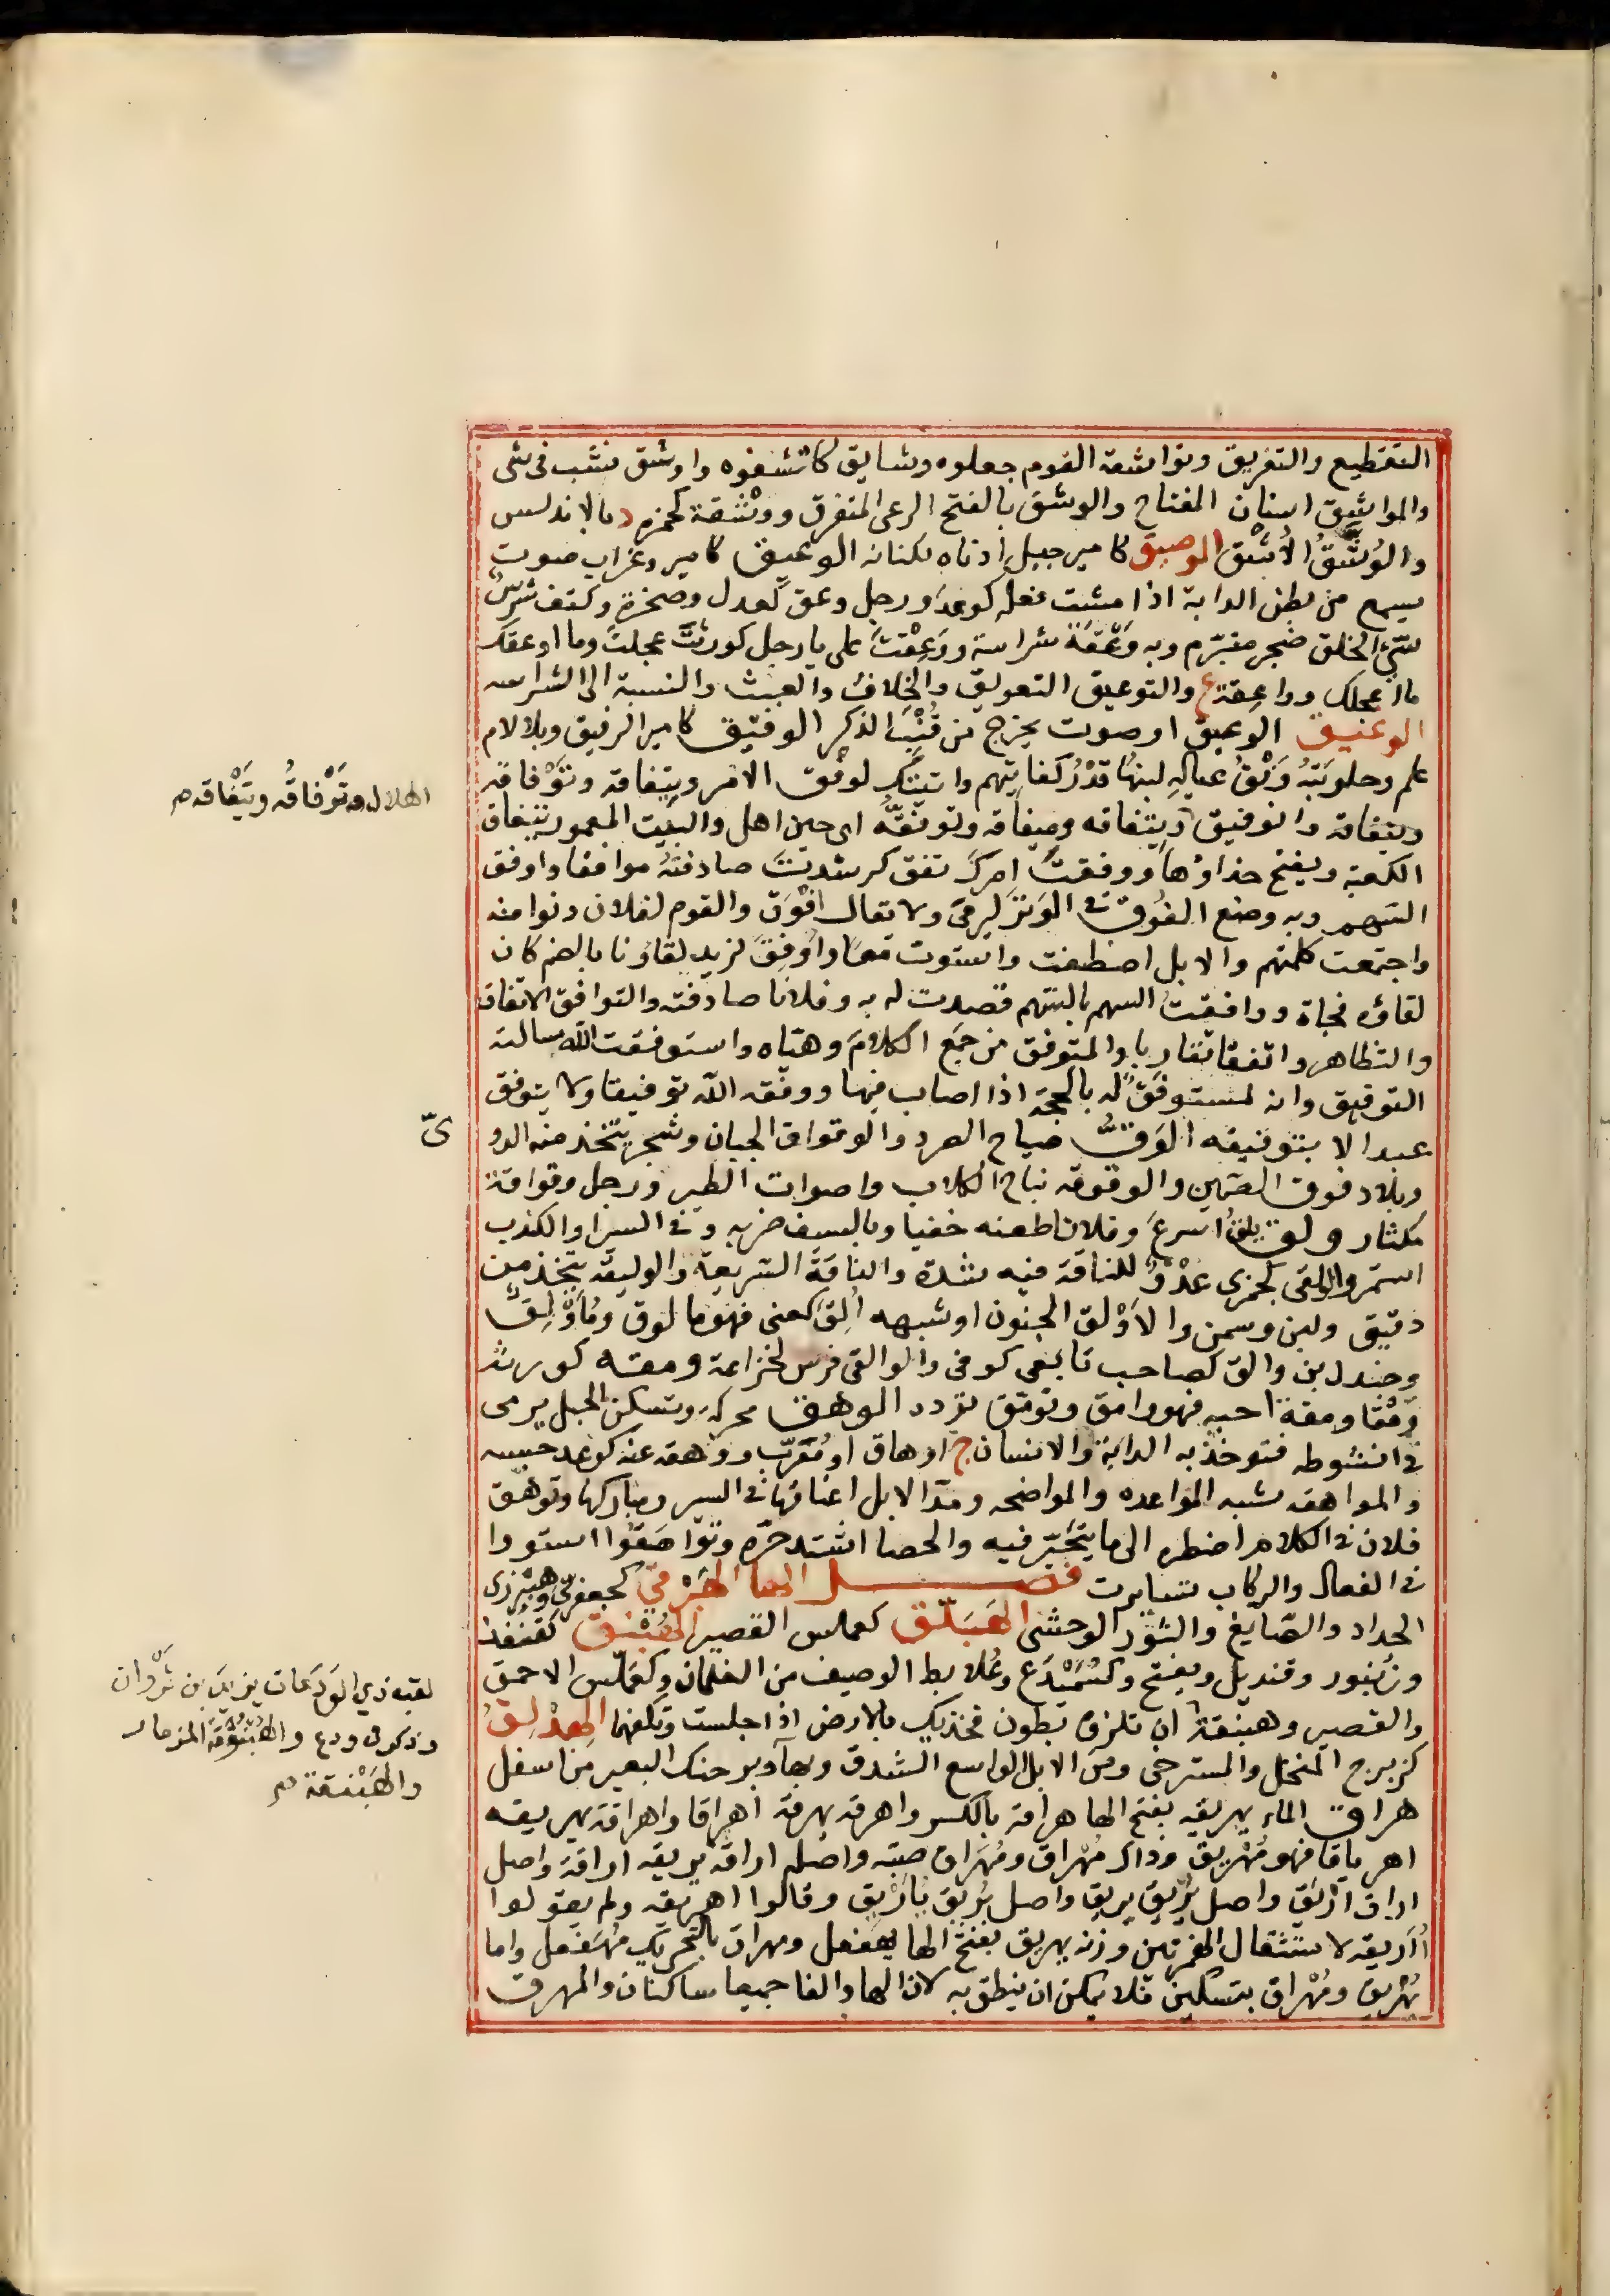 التقطيع والتفريق وتواشقه القوم جعلوه وشايق كاتشقوه واوشق نشب فى شى
والمواشيق اسنان المفتاح والوشق بالفتح الرعى المتفرق ووَشْقة كحمزه د بالاندلس
والوُشَّقُ الاُشَّق الوصيق كامير جبيل ادناه لكنانه الوعيق كامير وغراب صوت
يسمع من بطن الدابة اذا مشت فعله كوعد ورجل وعق كعدل وصخرة وكتف شرِسٌ
سيّئ الخلق ضجر متبرّم وبه وَعْقَة شراسة ووَعِقْتَ على يا رجل كورثتَ عجلتَ وما اوعقك
ما اعجلك وواعِقة ع والتوعيق التعويق والخلاف والعبث والنسبة الى الشراسه
الوغيق الوعيق او صوت يخرج من قُنْبِ الذكر الوفيق كامير الرفيق وبلا لام
علم وحلوبَتُه وَفْقُ عيالِهِ لبنُها قَدْرُ كفايتهم واتيتك لوفق الامر وتيفاقه وتَوْفاقه
وتيفاقه والتوفيق وتيفاقه وميفاقه وتوفقه اى حين اهل والبيت المعمور تيفاق
الكعبة ويفتح حذاؤها ووفقت امرك تفق كرشدت صادفته موافقا واوفق
السهم وبه وضع الفُوق فى الوَتَر ليرمى ولا يقال افوَق والقوم لفلان دنوا منه
واجتمعت كلمتهم والابل اصطفت واستوت معًا واُوفِق لزيد لقاؤنا بالضم كان
لقاؤه فجاة ووافقت السهم بالسهم قصدت له به وفلانا صادفته والتوافق الاتفاق
والتظاهر واتفقا تقاربا والمتوفق من جمع الكلام وهيّاه واستوفقت الله سالته
التوفيق وانه لمستوفَقٌ له بالحجة اذا اصاب فيها ووفقه الله توفيقا ولا يتوفق
عبد الا بتوفيقه الوَقُّ صياح الصرد والوقواق الجبان وشجر يتخذ منه الدوىّ
وبلاد فوق الصين والوقوقه نباح الكلاب واصوات الطير ورجل وقواقة
مكثار ولق يلق اسرع وفلانا طعنه خفيا وبالسيف ضربه وفى السير او الكذب
استمر والولقى كجمزى عَدْوٌ للناقة فيه شدة والناقة السريعة والوليقه يتخذ من
دقيق ولبن وسمن والاَوْلق الجنون او شبهه اُلِق كعنى فهو مالوق ومُأَوْلَق
وجندل بن والق كصاحب تابعى كوفى والوالقى فرس لخزاعة ومقه كورثه
وَمْقًا ومقة احبه فهو وامق وتومّق تودد الوهق محركه وتسكن الحبل يرمى
فى انشوطه فتوخذ به الدابة والانسان ج اوهاق او مُعَرّب ووهقه عنه كوعد حبسه
والمواهقه شبه المواعده والمواضخه ومدّ الابل اعناقها فى السير ومباراتها وتوهّق
فلان فى الكلام اضطره الى ما يتحيّر فيه والحصا اشتد حرّه وتواهَقُوا استووا
فى الفعال والركاب تسايرت فصــل الها الهَبْرَقى كجعفرىّ وهِبْرِزى
الحداد والصّايغ والثور الوحشى الهَبَلّق كعملس القصير الهُبْنُق كقنفذ
وزنبور وقنديل ويفتح وكسَمَيْدَع وعُلابط الوصيف من الغلمان وكعملّس الاحمق
والقصير وهبنقة ان تلزق بطون فخذيك بالارض اذا جلست وتكفهما الهِدْلِقُ
كزبرج المنخل والمسترخى ومن الابل الواسع الشدق وبهآء وبر حنك البعير من اسفل
هراق الماء يهريقه بفتح الها هراقة بالكسر واهرقه يهرقه اهراقا واهراقه يهريقه
اهرياقا فهو مُهَرِيق وذاك مُهْراق ومُهَراق صبّه واصله اراقه يريقه اراقة واصل
اراق اَرْيَق واصل يُرِيق يُرْيِق واصل يُرْيِق يُأَرْيِق وقالوا اهريقه ولم يقولوا
أُأَرِيقه لاستثقال الهمزتين وزنه يهريق بفتح الها يُهَفعل ومهراق بالتحريك مُهَفعل واما
يُهْريق ومُهْراق بتسكين فلا يمكن ان ينطق به لان الها والفا جميعا ساكنان والمهرق
الهلال وتَوْفاقُه وتِيْفاقه م
ىّ
لقب ذى الوَدَعات يزيد بن ثَرْوان
وذكر فى ودع والهُبْنُوقة المزمار
والهَبْنقة م